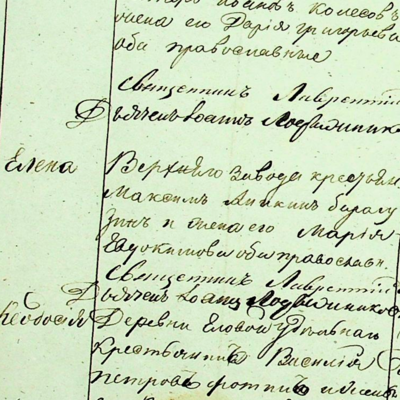 Іоаннъ Колесовъ
жена его Дарія Григорьева
оба православные
Священникъ Лаврентій
Дьячекъ Іоаннъ
Елена
Верхняго завода крестьян
Максимъ Аникинъ
и жена его Марія
Евдокимова оба православн
Священникъ Лаврентій
Дьячекъ Іоаннъ
Феодосій
Деревни Еловой удѣльнаг
крестьянинъ Василій
Петровъ